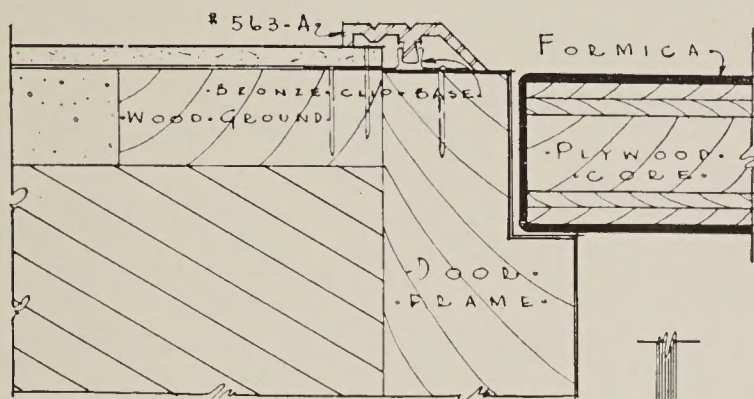 # 563-A2
FORMICA
·BRONZE·CLIP·BASE·
·WOOD·GROUND·
·PLYWOOD·
·CORE·
·DOOR·
·FRAME·